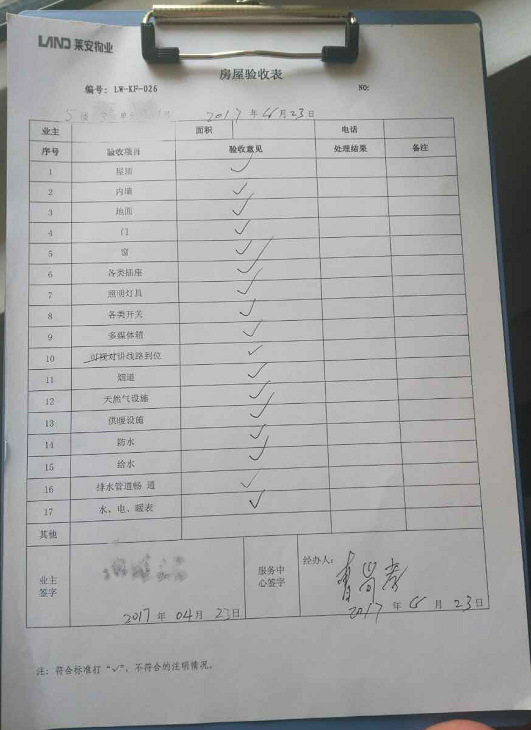 LAND 莱安物业
房屋验收表
编号: LW-KF-026 NO:
5 2017 年 4月 23日
业主 面积 电话
序号 验收项目 验收意见 处理结果 备注
1 屋顶 ✓
2 内墙 ✓
3 地面 ✓
4 门 ✓
5 窗 ✓
6 各类插座 ✓
7 照明灯具 ✓
8 各类开关 ✓
9 多媒体箱 ✓
10 可视对讲线路到位 ✓
11 烟道 ✓
12 天然气设施 ✓
13 供暖设施 ✓
14 防水 ✓
15 给水 ✓
16 排水管道畅 通 ✓
17 水、电、暖表 ✓
其他
业主签字 2017 年 04月 23日
服务中心签字 经办人:
2017 年 4 月 23日
注: 符合标准打“✓”, 不符合的注明情况。